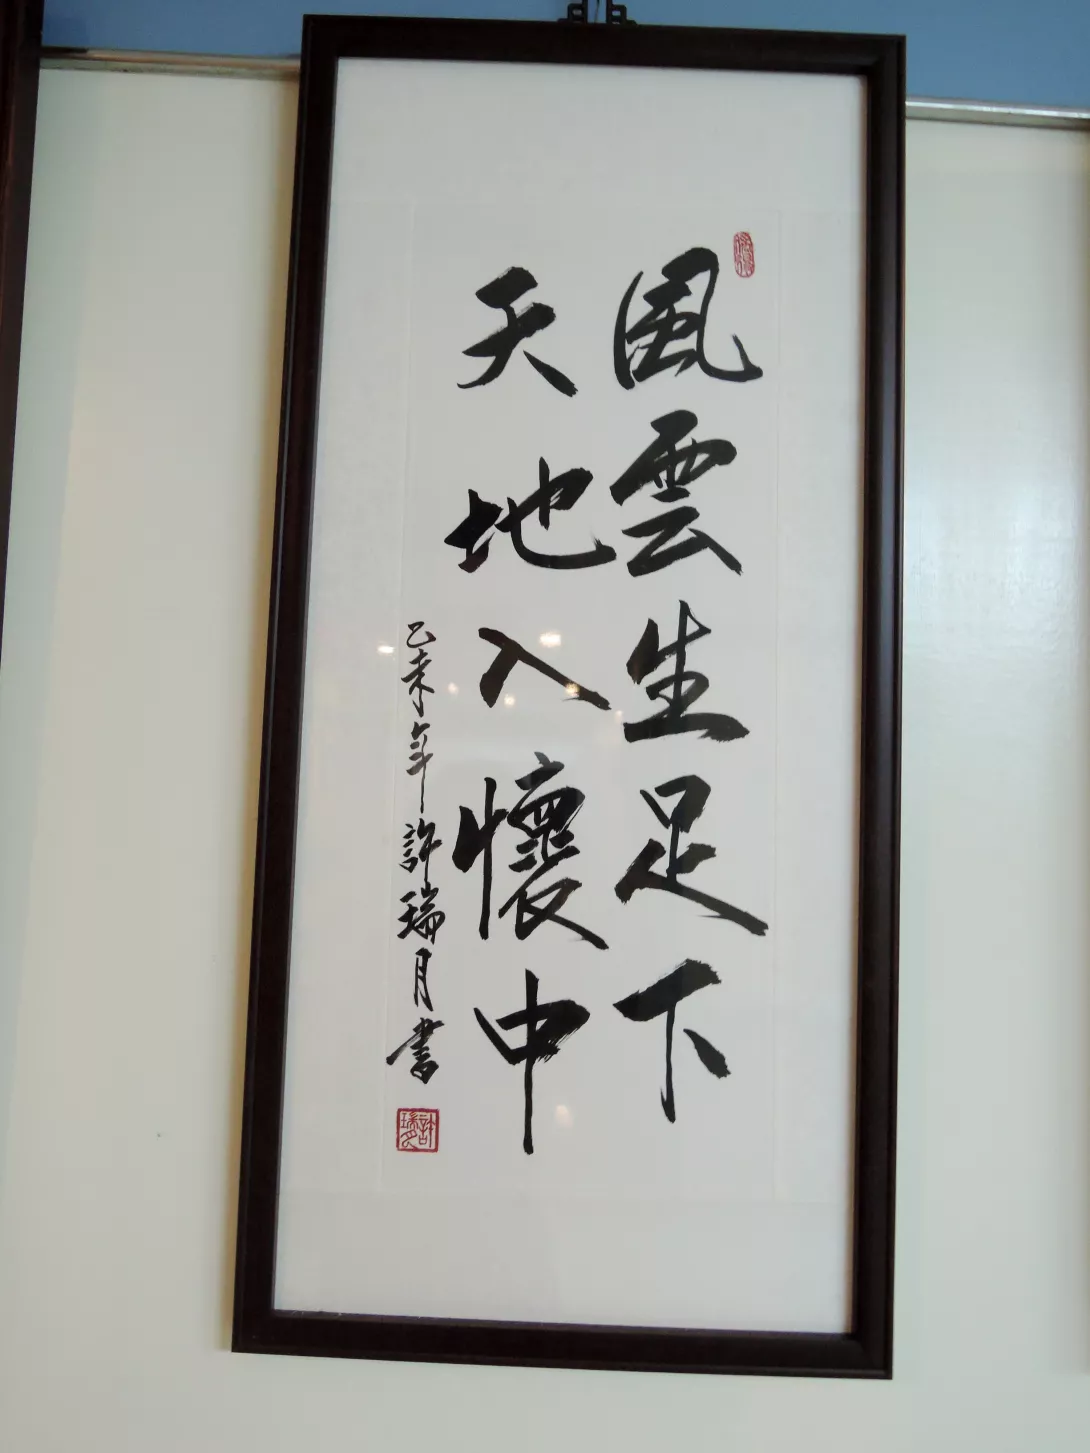 風雲生足下
天地入懷中
乙未年許瑞月書
許瑞月